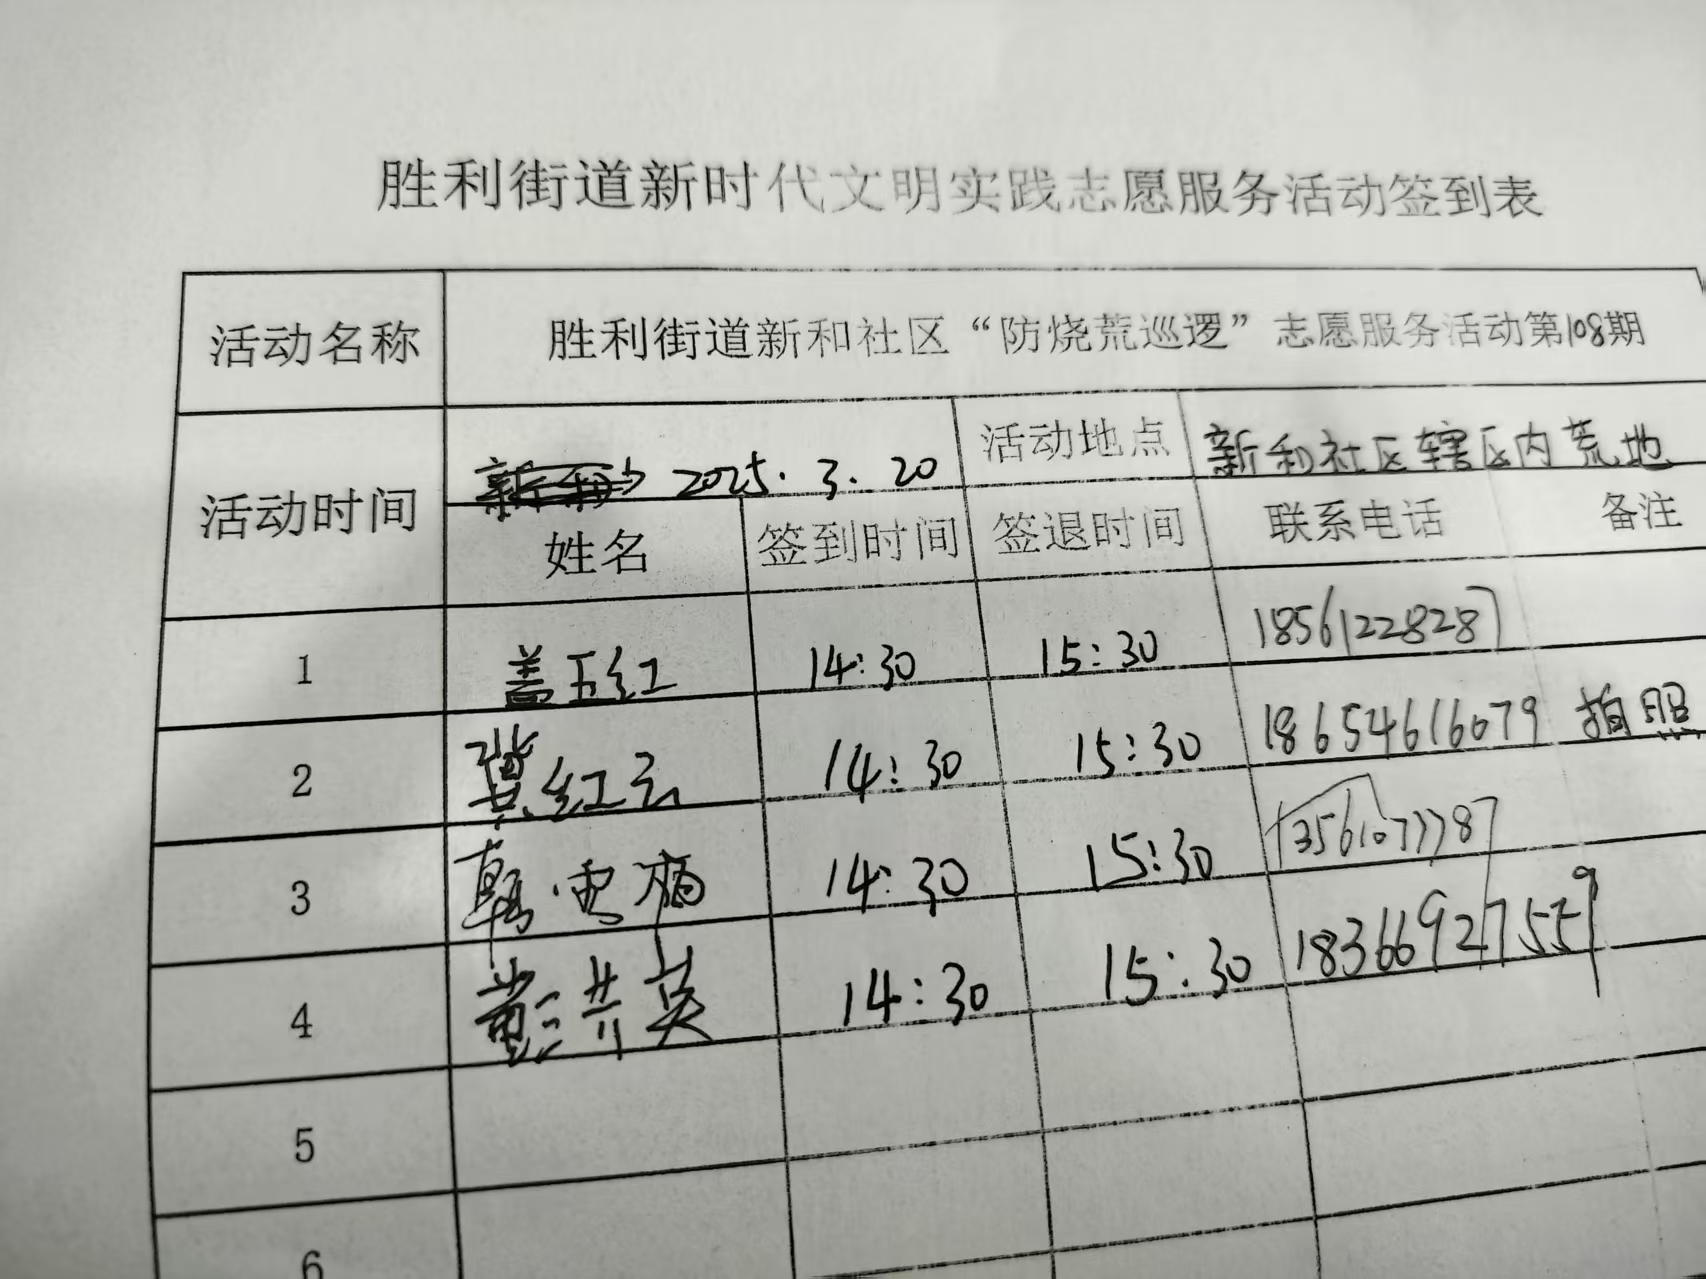 胜利街道新时代文明实践志愿服务活动签到表
活动名称 胜利街道新和社区“防烧荒巡逻”志愿服务活动第108期
活动时间 2025.3.20 活动地点 新和社区辖区内荒地
姓名 签到时间 签退时间 联系电话 备注
1 盖玉红 14:30 15:30 18561228287
2 冀红云 14:30 15:30 18654616079 拍照
3 14:30 15:30 13561077787
4 彭芳英 14:30 15:30 18366927559
5
6